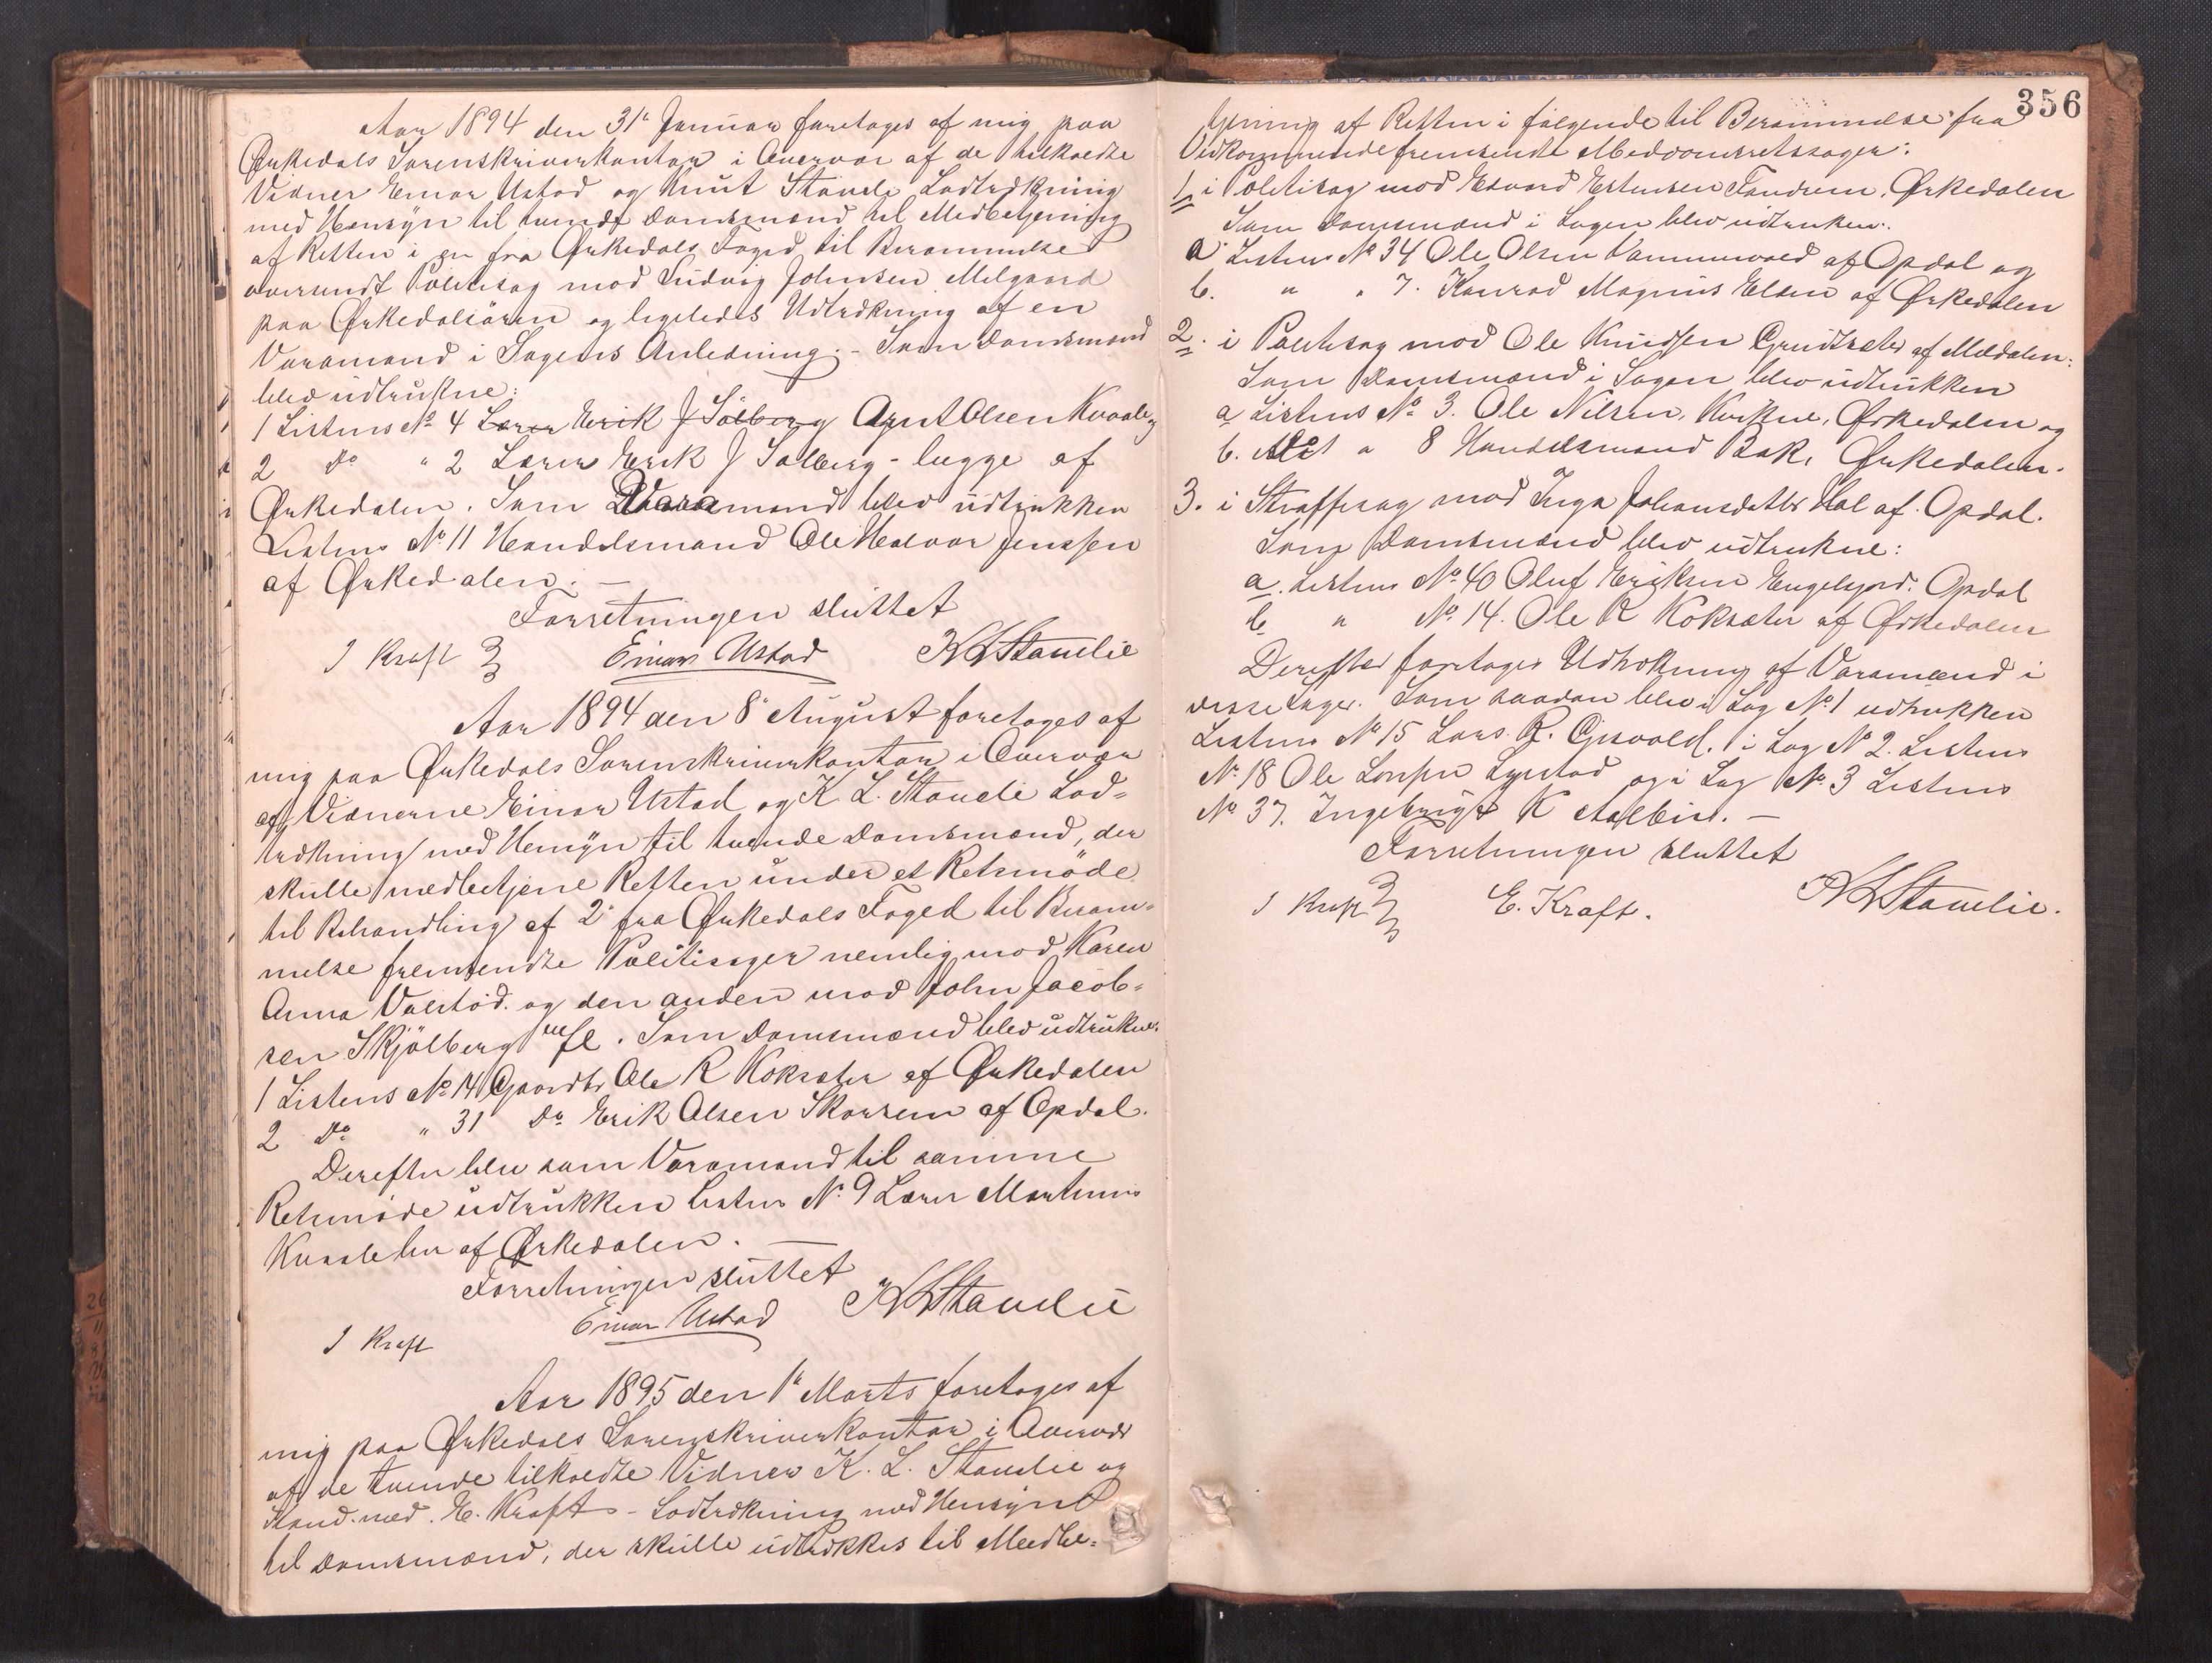 Aar 1894 den 31te Januar foretages af mig paa
Ørkedals Sorenskriverkontor i Overvær af de tilkaldte
Vidner Einar Ustad og Knut Staveli Lodtrækning
med Hensyn til tvende Domsmænd til Medbetjening
af Retten i en fra Ørkedals Foged til Berammelse
oversendt Politisag mod Ludvig Johnsen Melgaard
paa Ørkedalsøren og ligeledes Udtrækning af en
Varamand i Sagens Anledning. - Som Domsmænd
blev udtrukne:
1 Listens No 4 Lærer Erik J Solberg Arnt Olsen Kvaale,
2 Do " 2 Lærer Erik J Solberg - begge af
Ørkedalen. Som Varamand blev udtrukken
Listens No 11 Handelsmand Ole Halvor Jenssen
af Ørkedalen. -
Forretningen sluttet
J Kraft Einar Ustad K L Stavelie
Aar 1894 den 8de August foretages af
mig paa Ørkedals Sorenskriverkontor i Overvær
af Vidnerne Einar Ustad og K L. Staveli Lod-
trækning med Hensyn til tvende Domsmænd, der
skulle medbetjene Retten under et Retsmøde
til Behandling af 2de fra Ørkedals Foged til Beram-
melse fremsendte Politisager nemlig mod Karen
Anna Valstad. og den anden mod John Jacob-
sen Skjølberg m fl. Som Domsmænd blev udtrukne:
1 Listens No 14 Gaardbr Ole R Koksæter af Ørkedalen
2 Do " 31 Do Erik Olsen Skorrem af Opdal.
Derefter blev som Varamand til samme
Retsmøde udtrukken Listens No 9 Lærer Martinus
af Ørkedalen. -
Forretningen sluttet
J Kraft Einar Ustad K L Stavelie
Aar 1895 den 1te Marts foretages af
mig paa Ørkedals Sorenskriverkontor i Overvær
af de tvende tilkaldte Vidner K. L. Stavelie og
Stand. med. E. Kraft - Lodtrækning med Hensyn
til Domsmænd, der skulle udtrækkes til Medbe-
356
tjening af Retten i følgende til Berammelse fra
Vedkommende fremsendte Meddomsretssager:
1. i Politisag mod Edvard Estensen Fandrem, Ørkedalen
Som Domsmænd i Sagen blev udtrukken:
a Listens No 34 Ole Olsen Vammervold af Opdal og
b. " " 7. Konrad Magnus Elsen af Ørkedalen
2. i Politisag mod Ole Knudsen Grudtsæter af Meldalen:
Som Domsmænd i Sagen blev udtrukken
a Listens No 3. Ole Nilsen, Kvikne, Ørkedalen og
b. " 8 Handelsmand Bak, Ørkedalen.
3. i Straffesag mod Inga Johansdatter Hol af Opdal.
Som Domsmænd blev udtrukne:
a. Listens No 40 Oluf Eriksen Engelsjord. Opdal
b " No 14. Ole R Koksæter af Ørkedalen
Derefter foretages Udtrækning af Varamænd i
disse Sager. Som saadan blev i Sag No 1 udtrukken
Listens No 15 Lars R. Gisvold. i Sag No 2. Listens
No 18 Ole Larsen Lystad og i Sag No 3 Listens
No 37. Ingebrigt K Aalbu. -
Forretningen sluttet
J Kraft E. Kraft. K L Stavelie.